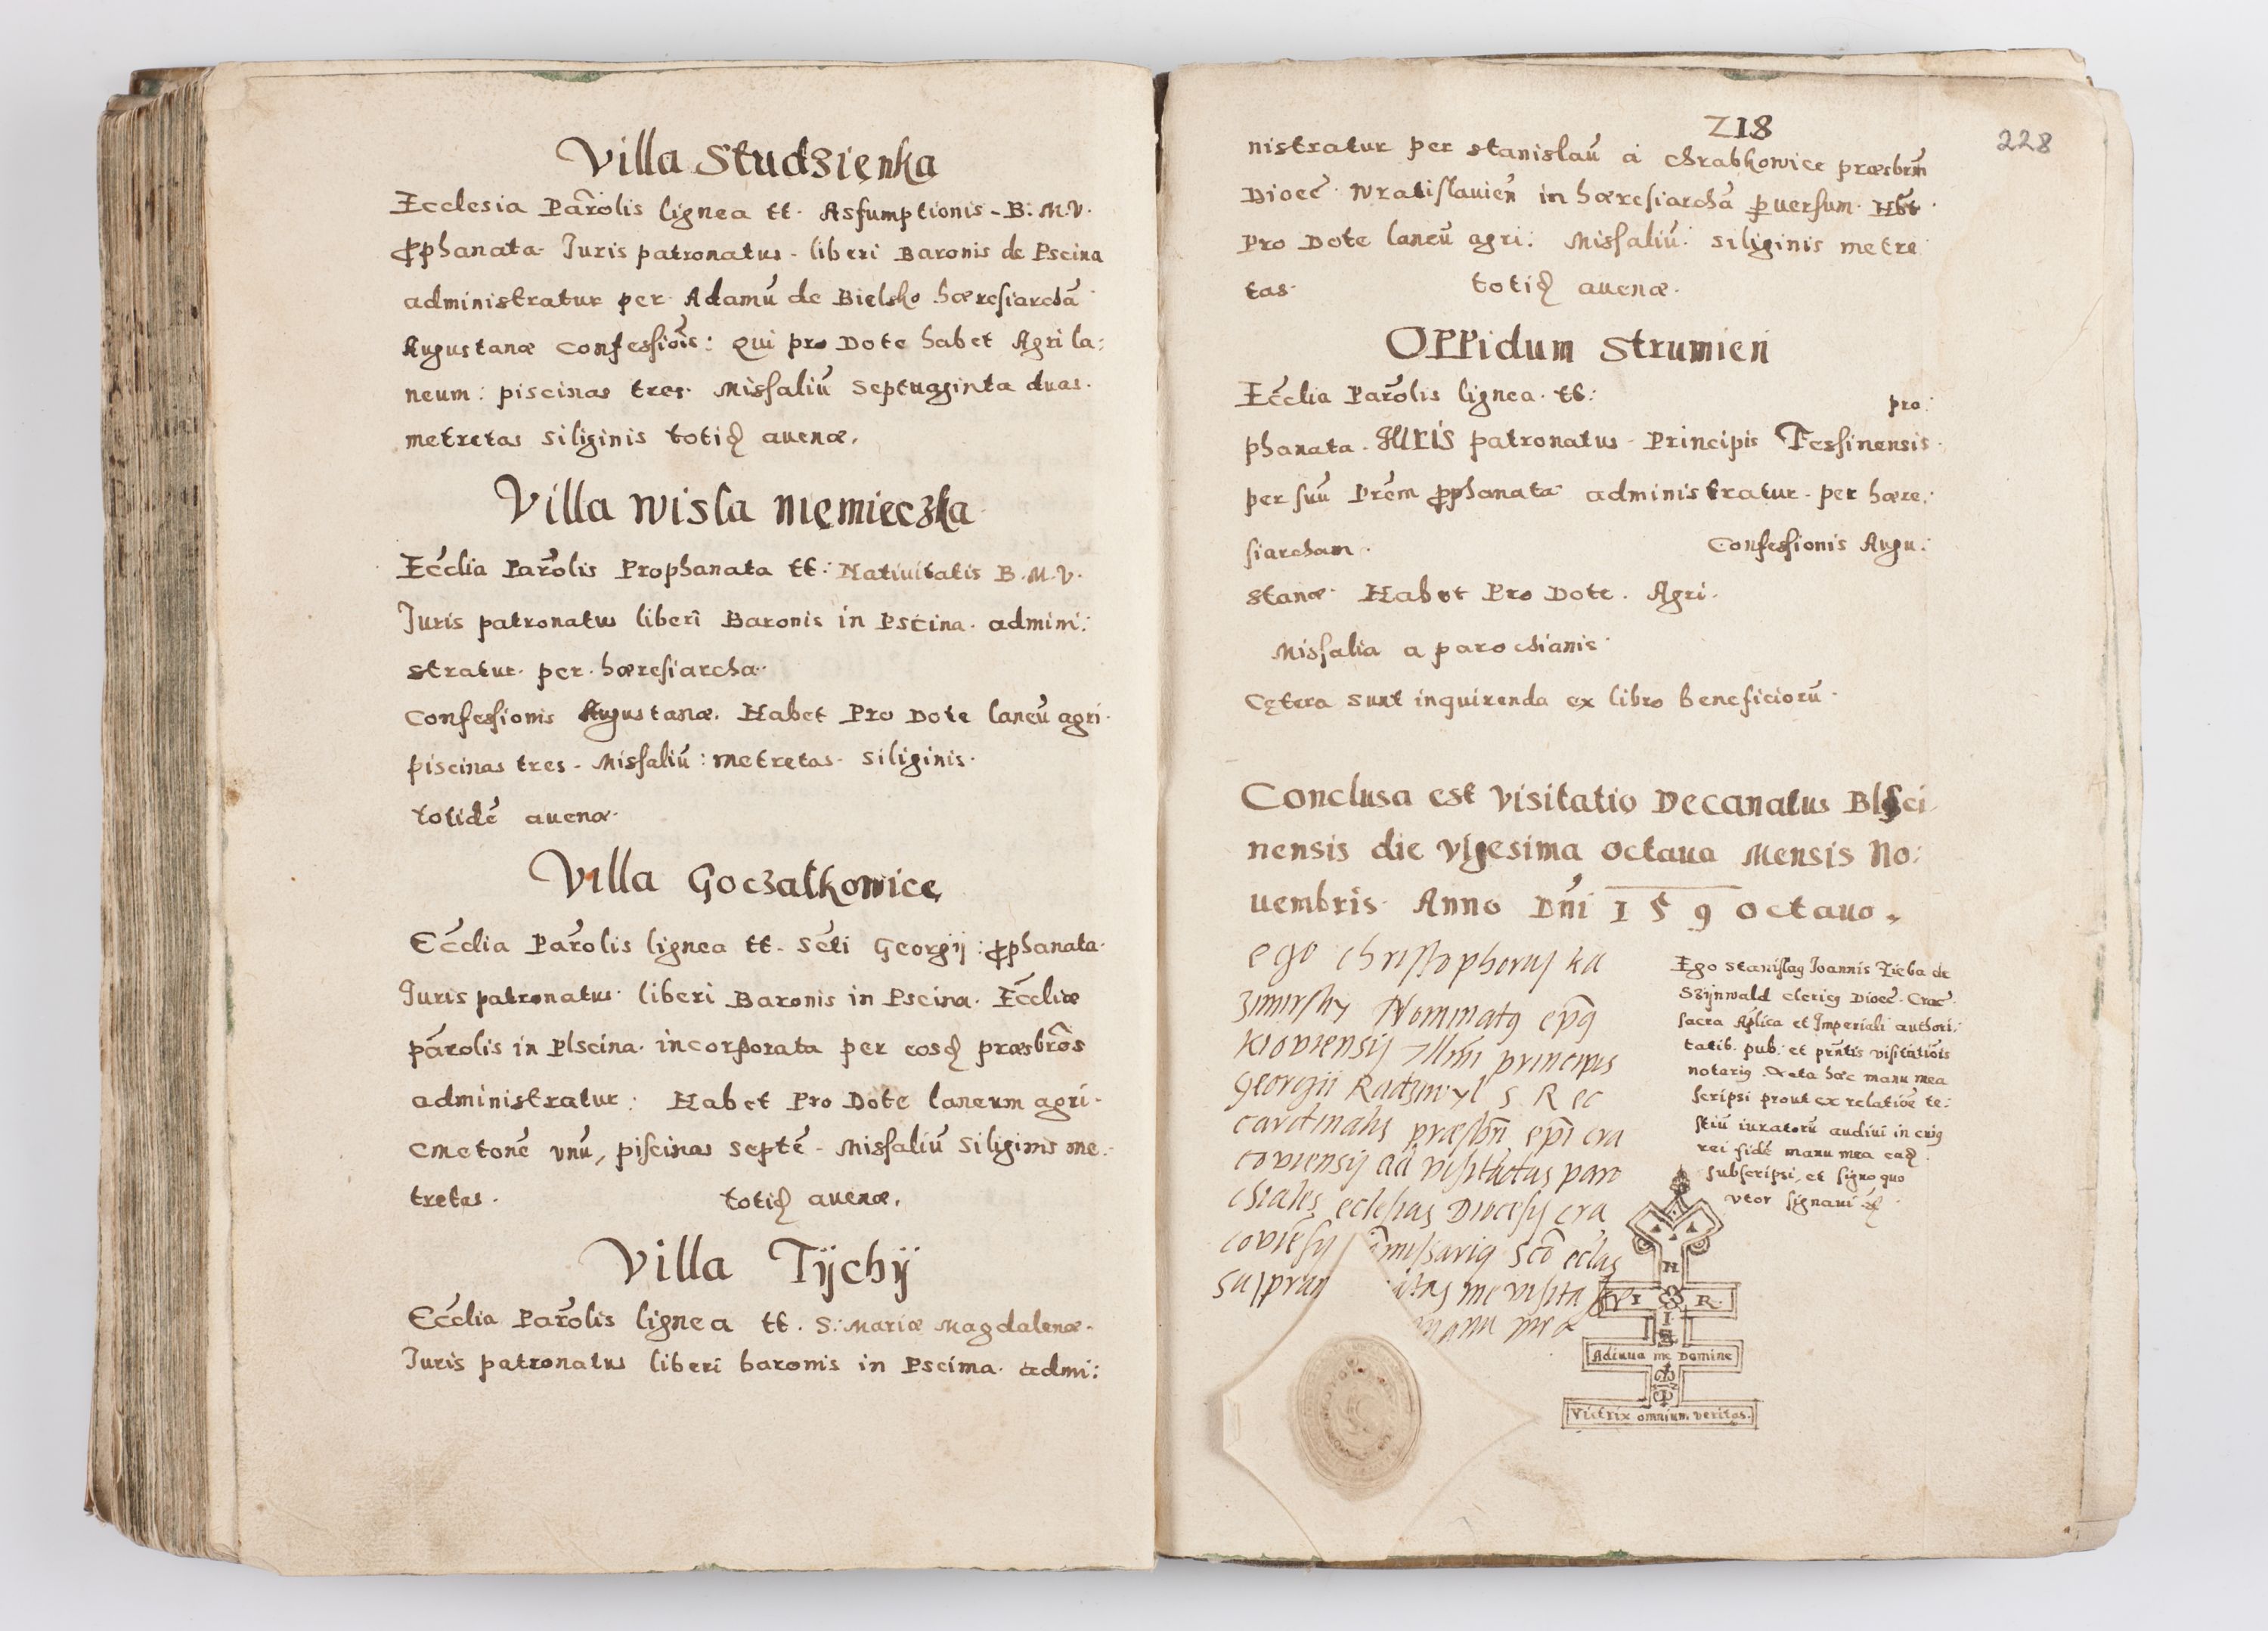 Villa Studzienka
Ecclesia Parolis lignea tt. Assumptionis - B. M. V.
prophanata. Iuris patronatus - liberi Baronis de Pscina
administratur per Adamũ de Bielsko hæresiarchã
Augustanæ Confessiõis: Qui pro Dote habet Agri la:
neum: piscinas tres. Missaliũ Septuaginta duas.
metretas Siliginis totiđ auenæ.
Villa Wisla Niemieczka
Ecclia Parolis Prophanata tt: Natiuitatis B. M. V.
Iuris patronatus liberi Baronis in Pscina. admini:
stratur. per. hæresiarcha.
Confessionis Augustanæ. Habet Pro Dote laneũ agri.
piscinas tres - Missaliũ: metretas. Siliginis.
totidẽ auenæ.
Villa Goczalkowicę
Ecclia Parolis lignea tt. Scti Georgij: prophanata.
Iuris patronatus. liberi Baronis in Pscina. Eccliæ
parolis in Plscina. incorporata per eosđ præsbrõs
administratur: Habet Pro Dote laneum agri.
Cmetonẽ vnũ, piscinas septẽ - Missaliũ Siliginis me:
tretas. totiđ auenæ.
Villa Tÿchÿ
Ecclia Parolis lignea tt. S. Mariæ Magdalenæ.
Iuris patronatus liberi baronis in Pscima. admi:
Z18
228
nistratur per stanislaũ a Chrabkowice præsbrm
Dioec. Wratislauien in hæresiarchã puersum. Hbt
Pro Dote laneũ agri: Missaliũ. siliginis metre
tas. totiđ auenæ.
OPPidum Strumien
Ecclia Parolis lignea. tt: pro:
phanata. Iuris patronatus - Principis Tessinensis.
per suũ Prẽm prophanata administratur. per hære:
siarcham. Confessionis Augu:
stanæ. Habet Pro Dote. Agri.
Missalia a parochianis
Cętera sunt inquirenda ex libro beneficiorũ.
Conclusa est Visitatio Decanatus Blsci
nensis die Vigesima octaua Mensis No:
uembris. Anno Dñi 1 5 9 octauo.
ego christophorus ka
zimirsky Nominatq epq
kiouiensis Illmi principis
Georgii Radziwyl S R ec
cardinalis præsbri epi cra
couiensis ad visitatas paro
chiales eclesias Diocesis cra
couiẽsis missariq Sco eclas
su pra itas me visita
manu mea
Ego Stanislaq Ioannis Zieba de
Szÿnwald clericq Dioec. Crac.
sacra Aplica et Imperiali authori:
tatib. pub. et prntis visitatiõis
notariq. hæc manu mea
scripsi prout ex relatiõe te:
stiũ iuratorũ audiui in cuiq
rei fidẽ manu mea eađ
subscripsi, et signo quo
vtor signaui
N
I R.
I
Adiuua me Domine
Victrix omnium veritas.